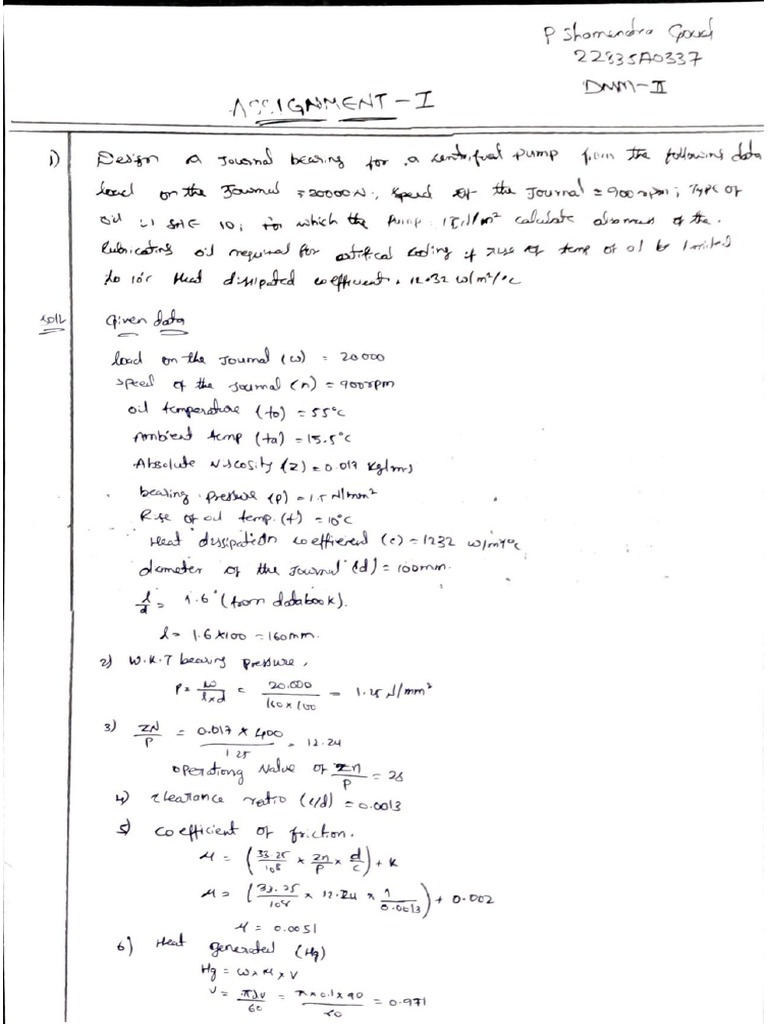 P Shamendra Goud
22835A0337
DMM-II
ASSIGNMENT-I
1) Design a Journal bearing for a centrifugal pump from the following data
load on the Journal =20000N, speed of the Journal = 900rpm; Type of
oil is SAE 10; for which the Pump calculate of the
lubricating oil required for artifical cooling if rise of temp of oil be limited
to 10°c Heat dissipated coefficient = 12.32 w/m²/°c
Solt Given data
load on the Journal (w) = 20000
speed of the Journal (n) = 900rpm
oil temperature (to) = 55°c
Ambient temp (ta) = 15.5°c
Absolute viscosity (z) = 0.017 kg/ms
bearing pressure (p) = 1.5 N/mm²
Rise of oil temp. (t) = 10°c
Heat dissipation coefficient (c) = 1232 w/m²/°c
diameter of the Journal (d) = 100mm.
l/d = 1.6 (from databook).
l = 1.6×100 = 160mm.
2) W.K.T bearing pressure,
P = w/l×d = 20.000/160×100 = 1.25 N/mm²
3) ZN/P = 0.017 × 900/1.25 = 12.24
operationg value of zn/P = 28
4) clearance ratio (c/d) = 0.0013
5) coefficient of friction.
μ = (33.25/10⁸ × zn/p × d/c) + k
μ = (33.25/10⁸ × 12.24 × 1/0.0013) + 0.002
μ = 0.0051
6) Heat generated (Hg)
Hg = w×μ×v
v = πdN/60 = π×0.1×90/60 = 0.971